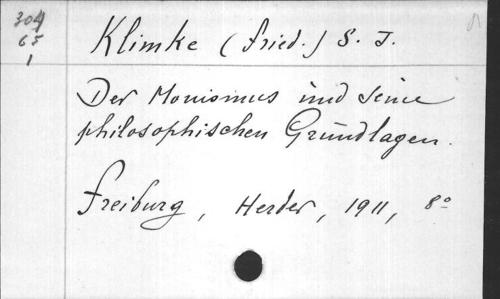 304
65
1
Klimke (Fried.) S. J.
Der Monismus und seine
philosophischen Grundlagen.
Freiburg, Herder, 1911, 8°